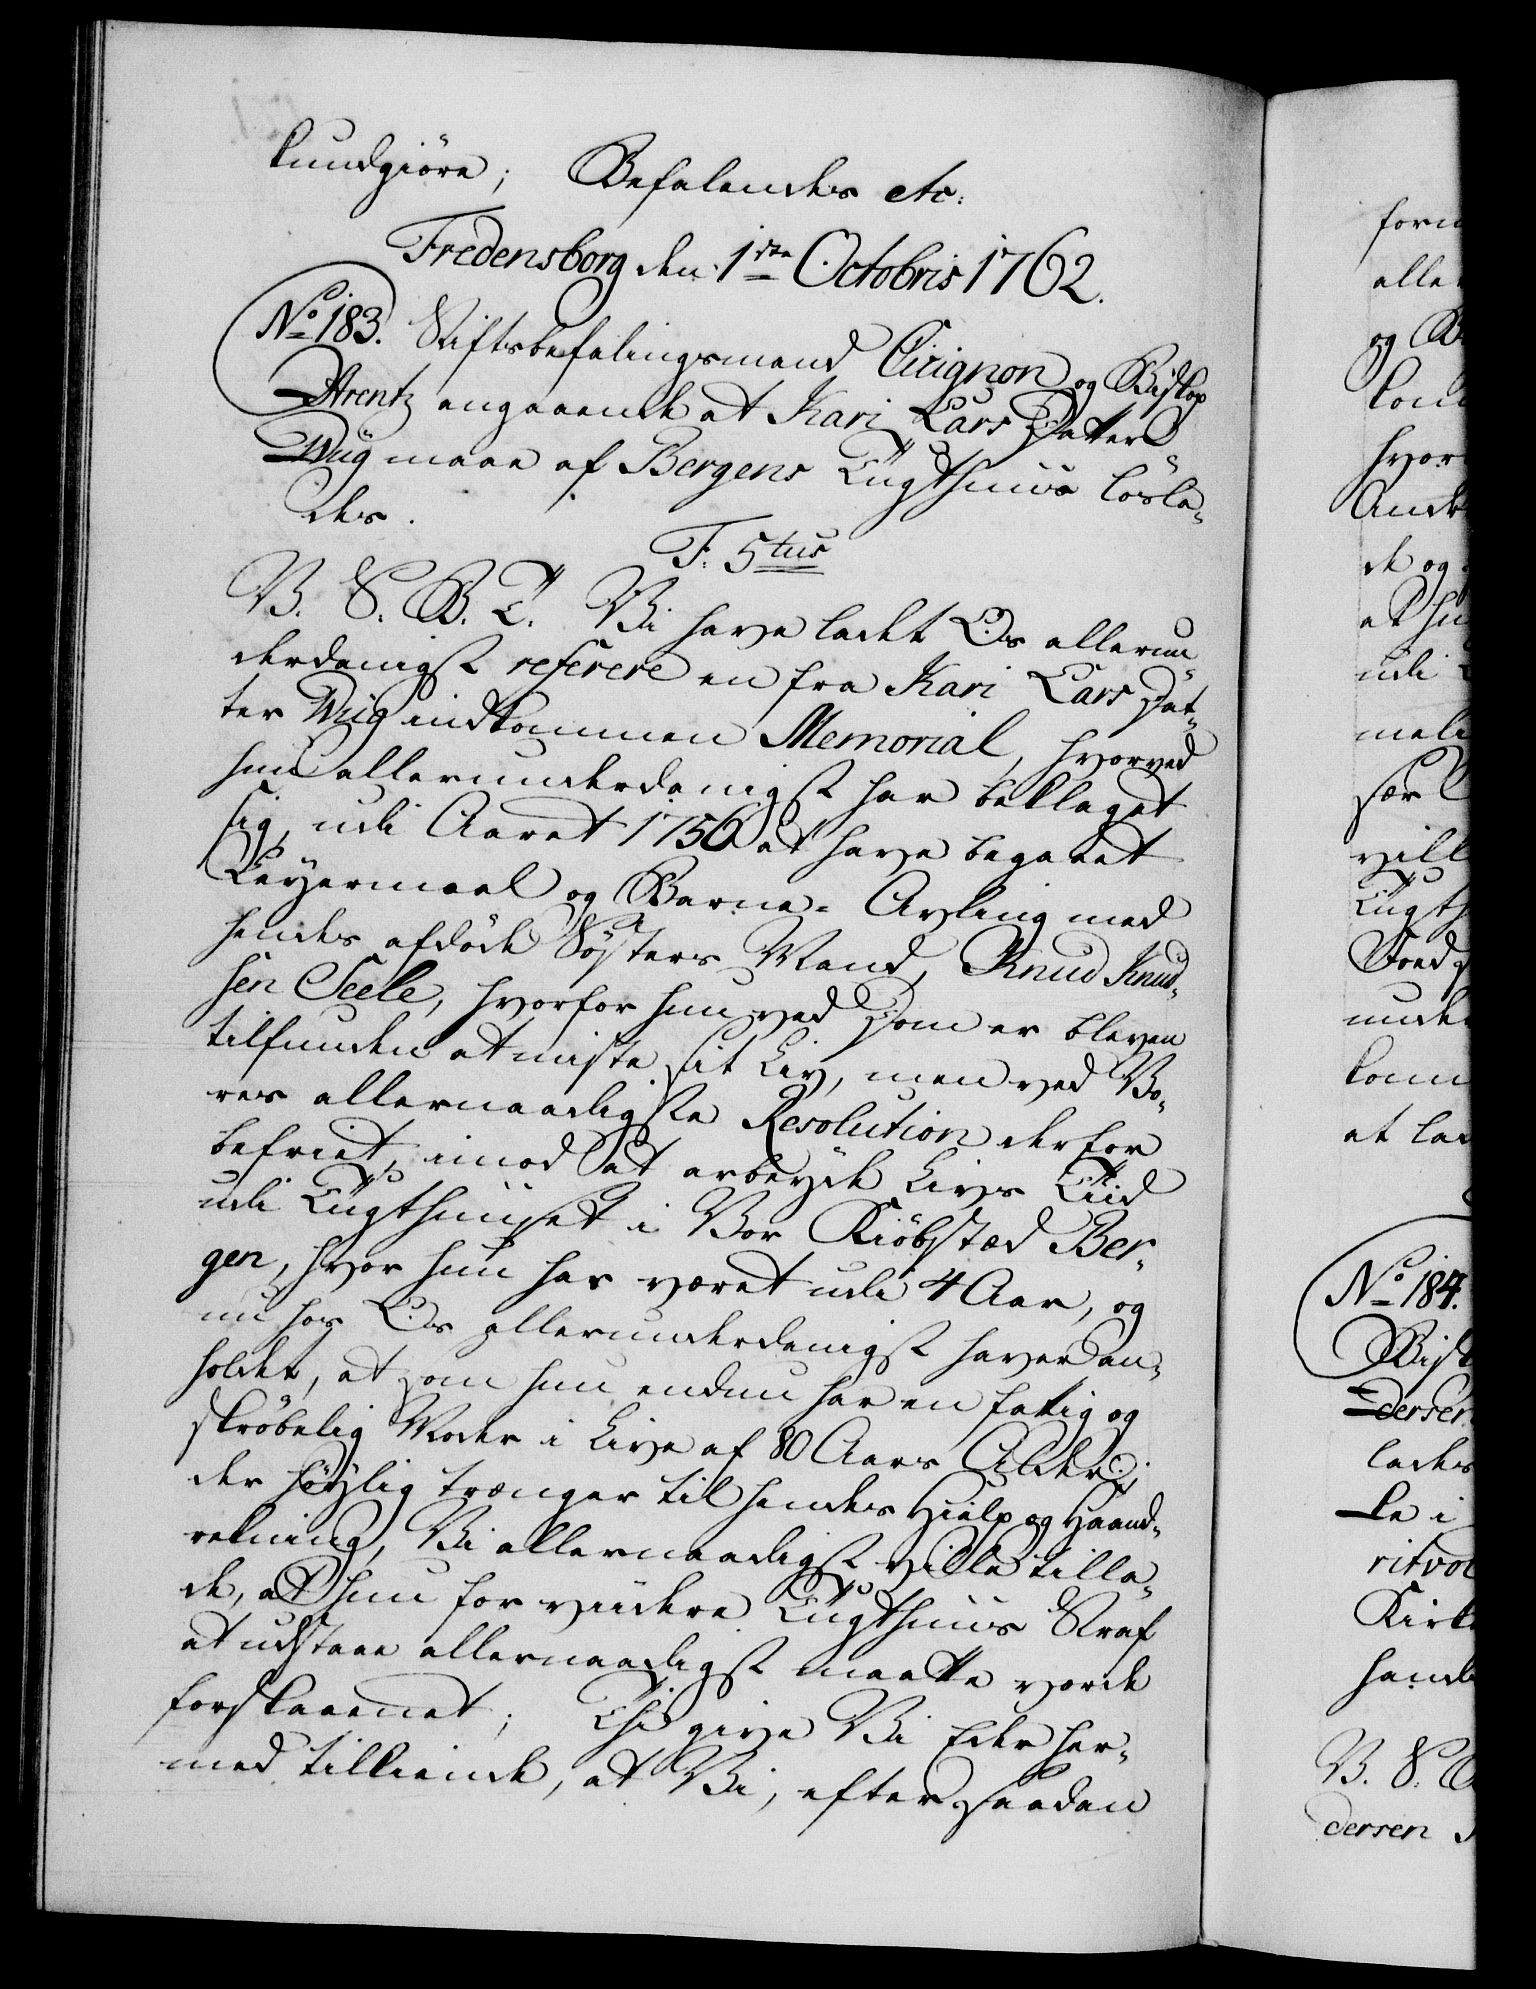 kundgiöre; Befalendes etc:
Fredensborg den 1ste Octobris 1762.
No 183. Stiftsbefalingsmand Cicignon og Bishop
Arentz angaaende at Kari Lars Datter
Wiig maae af Bergens Tugthuus lösla-
des.
F: 5tus
V. S. G. T. Vi have ladet Os allerun-
derdanigst referere en fra Kari Lars Dat-
ter Wiig indkommen Memorial, hvorved
hun allerunderdanigst har beklaget
sig, udi Aaret 1756 at have begaaet
Leyermaal og Barne-Avling med
hendes afdöde Søsters Mand, Knud Knud-
sen Seele, hvorfor hun ved Dom er bleven
tilfunden at miste sit Liv, men ved Vo-
res allernaadigste Resolution derfor
befriet, imod at arbeyde Livs Tiid
udi Tugthuuset i Vor Kiöbstæd Ber-
gen, hvor hun har været udi 4 Aar, og
nu hos Os allerunderdanigst haver an-
holdet, at som hun endnu har en fattig og
skröbelig Moder i Live af 80 Aars Alder,
der höylig trænger til hendes Hielp og Haand-
rekning, Vi allernaadigst ville tilla-
de, at hun for viidere Tugthuus Straf
at udstaae allernaadigst maatte vorde
forskaanet; Thi give Vi Eder her-
med tilkiende, at Vi, efter saadan
alle
og B
hvor
de og
udi
vill
Tugth
at lad
No 184.
dersen
lades
Kirk
V. S.
dersen